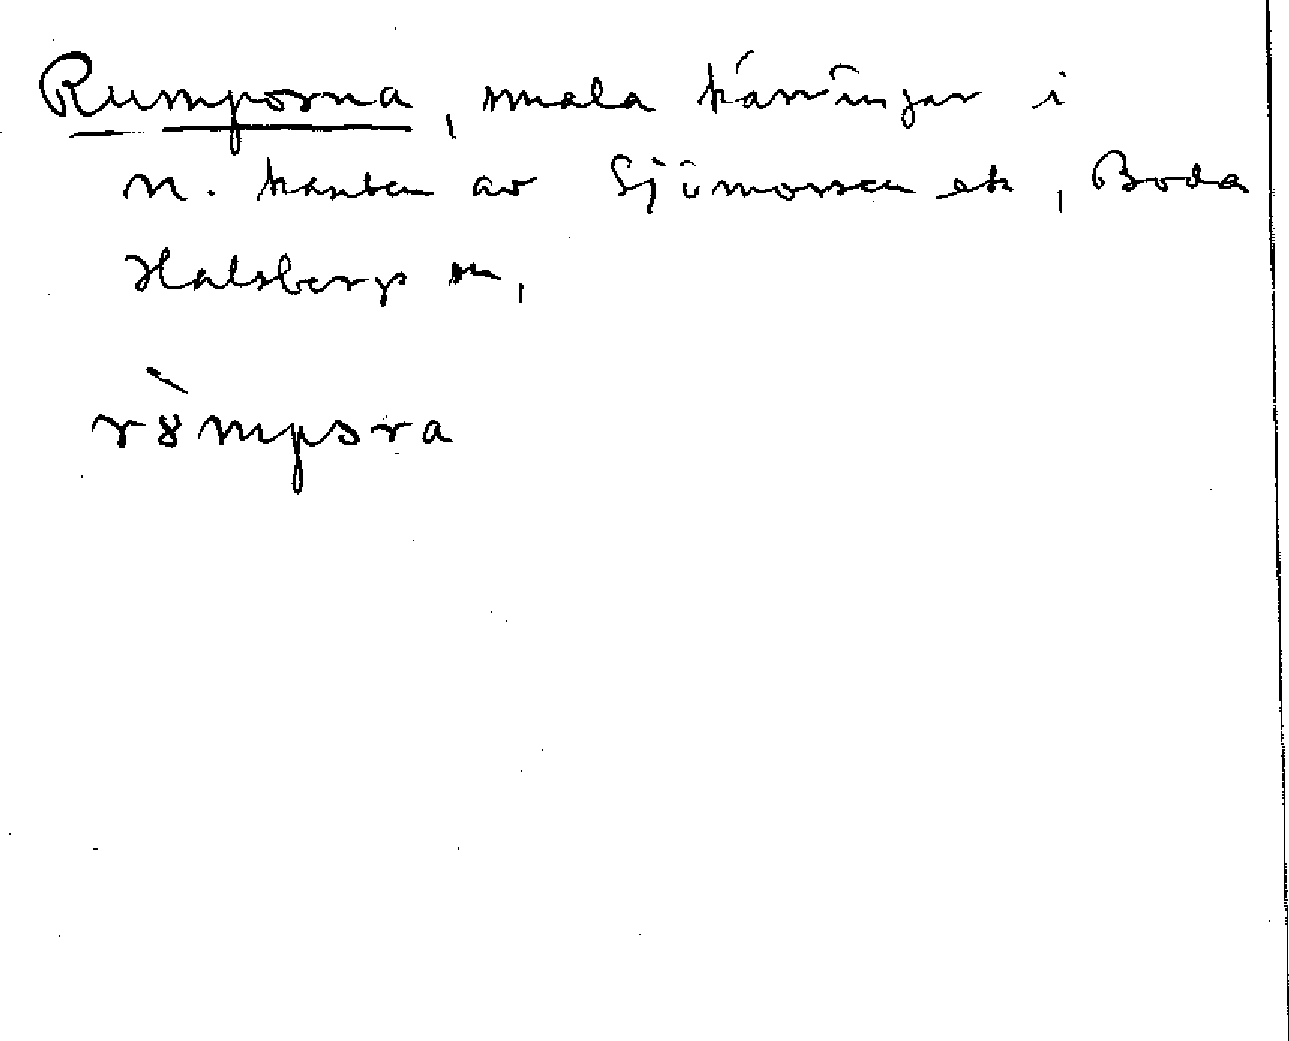 Rumporna, smala kärringar i
n. kanten av Sjömossen ek, Boda
Halsberg sn,
rò̀mpora